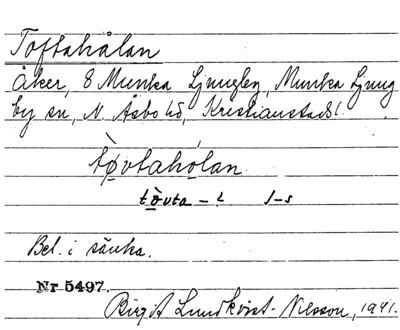 Toftahålan
Åker, 8 Munka Ljungby, Munka Ljung
by sn, N. Åsbo hd, Kristianstads l.
tòvtahólan
tòvta – l 1-s
Bel. i sänka.
Nr 5497.
Birgit Lundkvist-Nilsson, 1941.